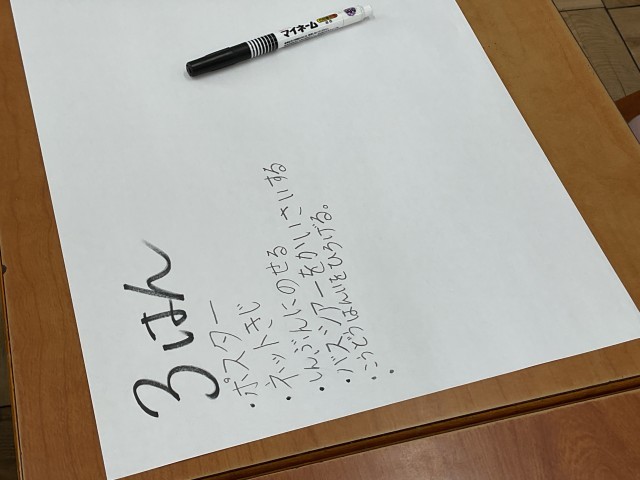 マイネーム
3はん
・ポスター
・ネットきじ
・しんぶんにのせる
・バスツアーをかいさいする
・こうどうはんいをひろげる。
・